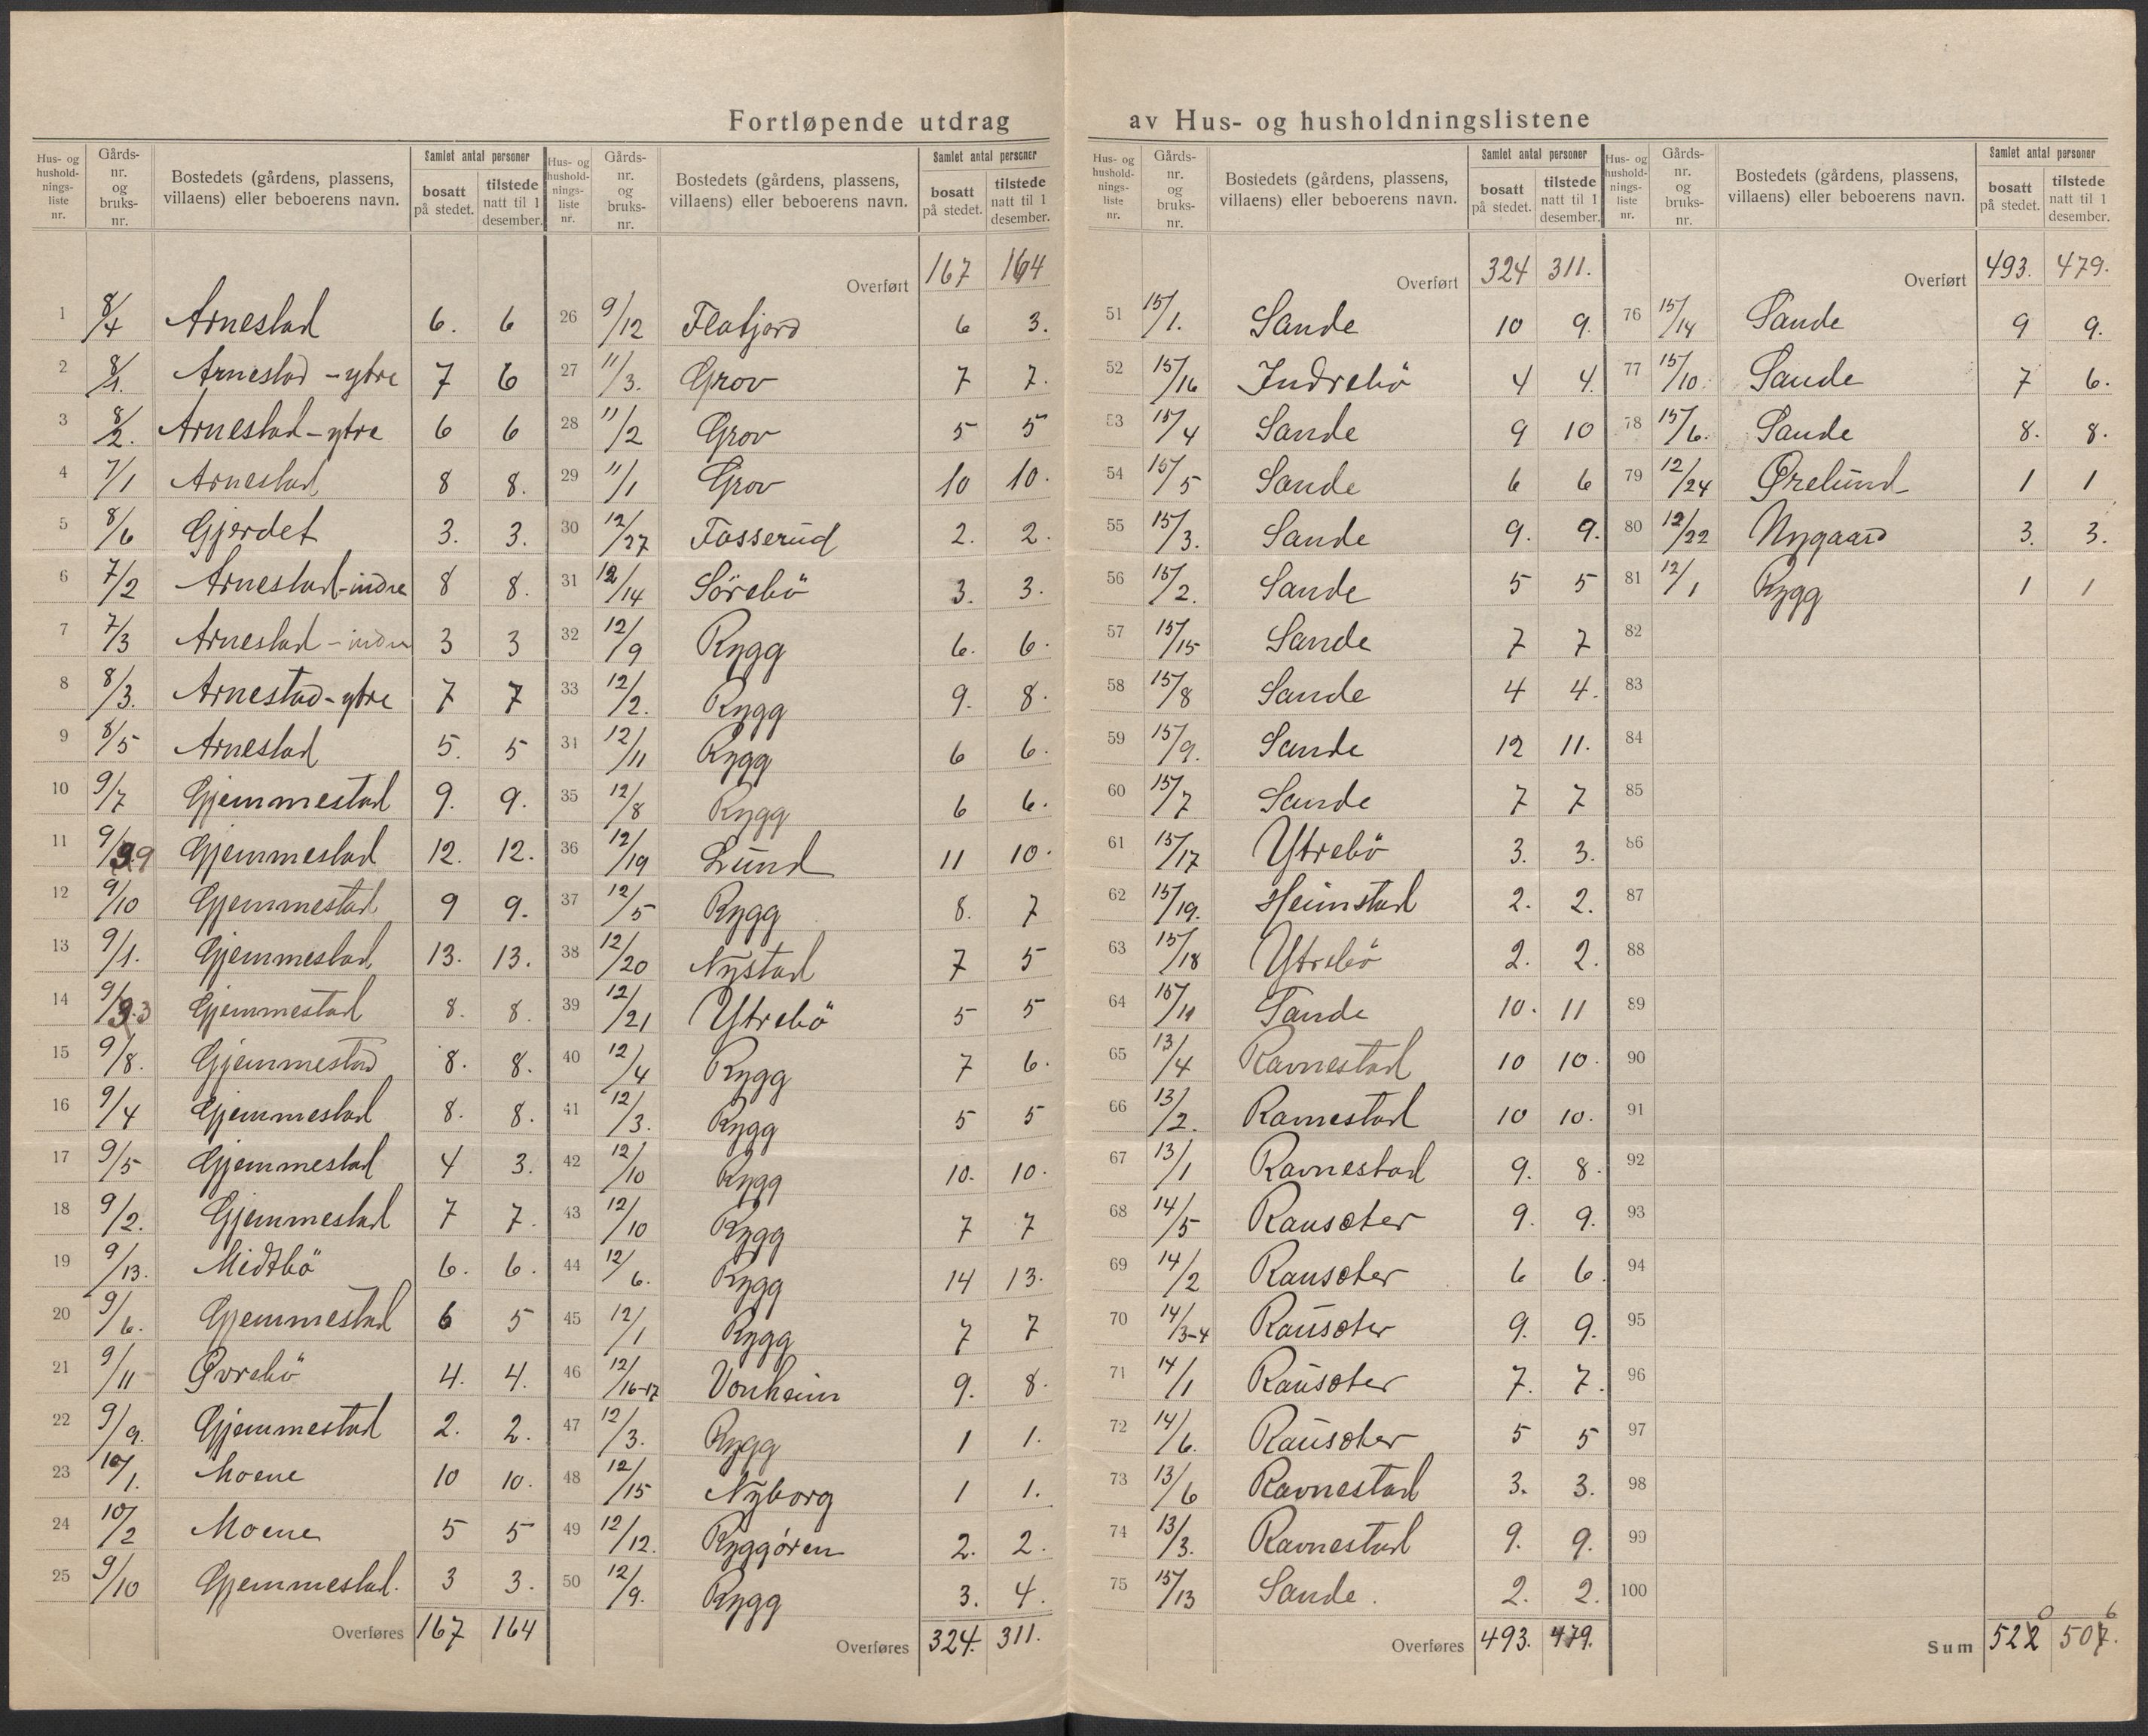 Fortløpende utdrag av Hus- og husholdningslistene
Hus- og hushold-nings-liste nr. | Gårds-nr. og bruks-nr. | Bostedets (gårdens, plassens, villaens) eller beboerens navn. | Samlet antal personer | bosatt på stedet. | tilstede natt til 1 desember.
1 8/4 Arnestad 6. 6
2 8/1. Arnestad - ytre 7 6
3 8/2. Arnestad - ytre 6 6
4 7/1 Arnestad 8 8.
5 8/6 Gjerdet 3. 3.
6 7/2 Arnestad - indre 8 8.
7 7/3 Arnestad - indre 3 3
8 8/3. Arnestad - ytre 7 7
9 8/5 Arnestad 5. 5
10 9/7 Gjemmestad 9. 9.
11 9/9 Gjemmestad 12. 12.
12 9/10 Gjemmestad 9 9.
13 9/1. Gjemmestad 13. 13.
14 9/3 Gjemmestad 8. 8.
15 9/8. Gjemmestad 8. 8.
16 9/4 Gjemmestad 8. 8.
17 9/5 Gjemmestad 4 3.
18 9/2. Gjemmestad 7 7.
19 9/13. Midtbö 6. 6.
20 9/6. Gjemmestad 6 5
21 9/11 Øvrebö 4. 4.
22 9/9. Gjemmestad 2. 2.
23 10/1. Moene 10 10.
24 10/2 Moene 5 5
25 9/10 Gjemmestad. 3 3.
Overføres 167 164
Hus- og hushold-nings-liste nr. | Gårds-nr. og bruks-nr. | Bostedets (gårdens, plassens, villaens) eller beboerens navn. | Samlet antal personer | bosatt på stedet. | tilstede natt til 1 desember.
Overført 167 164
26 9/12 Flatjord 6 3.
27 11/3. Grov 7 7.
28 11/2 Grov 5 5
29 11/1 Grov 10 10.
30 12/27 Fosserud 2. 2.
31 12/14 Sörebö 3. 3.
32 12/9 Rygg 6. 6.
33 12/2. Rygg 9. 8.
34 12/11 Rygg 6 6.
35 12/8 Rygg 6 6.
36 12/19 Lund 11 10.
37 12/5 Rygg 8. 7
38 12/20 Nystad 7 5
39 12/21 Ytrebö 5 5
40 12/4 Rygg 7 6.
41 12/3. Rygg 5 5
42 12/10 Rygg 10. 10.
43 12/10 Rygg 7 7
44 12/6. Rygg 14 13.
45 12/1 Rygg 7 7
46 12/16-17 Vonheim 9. 8.
47 12/3. Rygg 1 1.
48 12/15 Nyborg 1 1.
49 12/12. Ryggøren 2. 2.
50 12/9. Rygg 3. 4.
Overføres 324. 311.
Hus- og hushold-nings-liste nr. | Gårds-nr. og bruks-nr. | Bostedets (gårdens, plassens, villaens) eller beboerens navn. | Samlet antal personer | bosatt på stedet. | tilstede natt til 1 desember.
Overført 324 311.
51 15/1. Sande 10 9.
52 15/16 Indrebö 4 4.
53 15/4 Sande 9 10
54 15/5 Sande 6 6
55 15/3. Sande 9. 9.
56 15/2. Sande 5 5
57 15/15 Sande 7 7
58 15/8 Sande 4 4.
59 15/9. Sande 12 11.
60 15/7 Sande 7 7
61 15/17 Ytrebö 3. 3.
62 15/19. Heimstad 2. 2.
63 15/18 Ytrebö 2. 2.
64 15/11 Sande 10. 11
65 13/4 Ravnestad 10 10.
66 13/2. Ravnestad 10 10.
67 13/1 Ravnestad 9. 8.
68 14/5 Rauseter 9. 9.
69 14/2 Rauseter 6 6.
70 14/3-4 Rauseter 9. 9.
71 14/1 Rauseter 7. 7.
72 14/6. Rauseter 5 5
73 13/6 Ravnestad 3. 3.
74 13/3. Ravnestad 9. 9.
75 15/13 Sande. 2. 2.
Overføres 493. 479.
Hus- og hushold-nings-liste nr. | Gårds-nr. og bruks-nr. | Bostedets (gårdens, plassens, villaens) eller beboerens navn. | Samlet antal personer | bosatt på stedet. | tilstede natt til 1 desember.
Overført 493. 479.
76 15/14 Sande 9 9.
77 15/10. Sande 7 6.
78 15/6. Sande 8. 8.
79 12/24 Ørelund 1 1
80 12/22 Nygaard 3. 3.
81 12/1 Rygg 1 1
82
83
84
85
86
87
88
89
90
91
92
93
94
95
96
97
98
99
100
0 6
Sum 522 507.